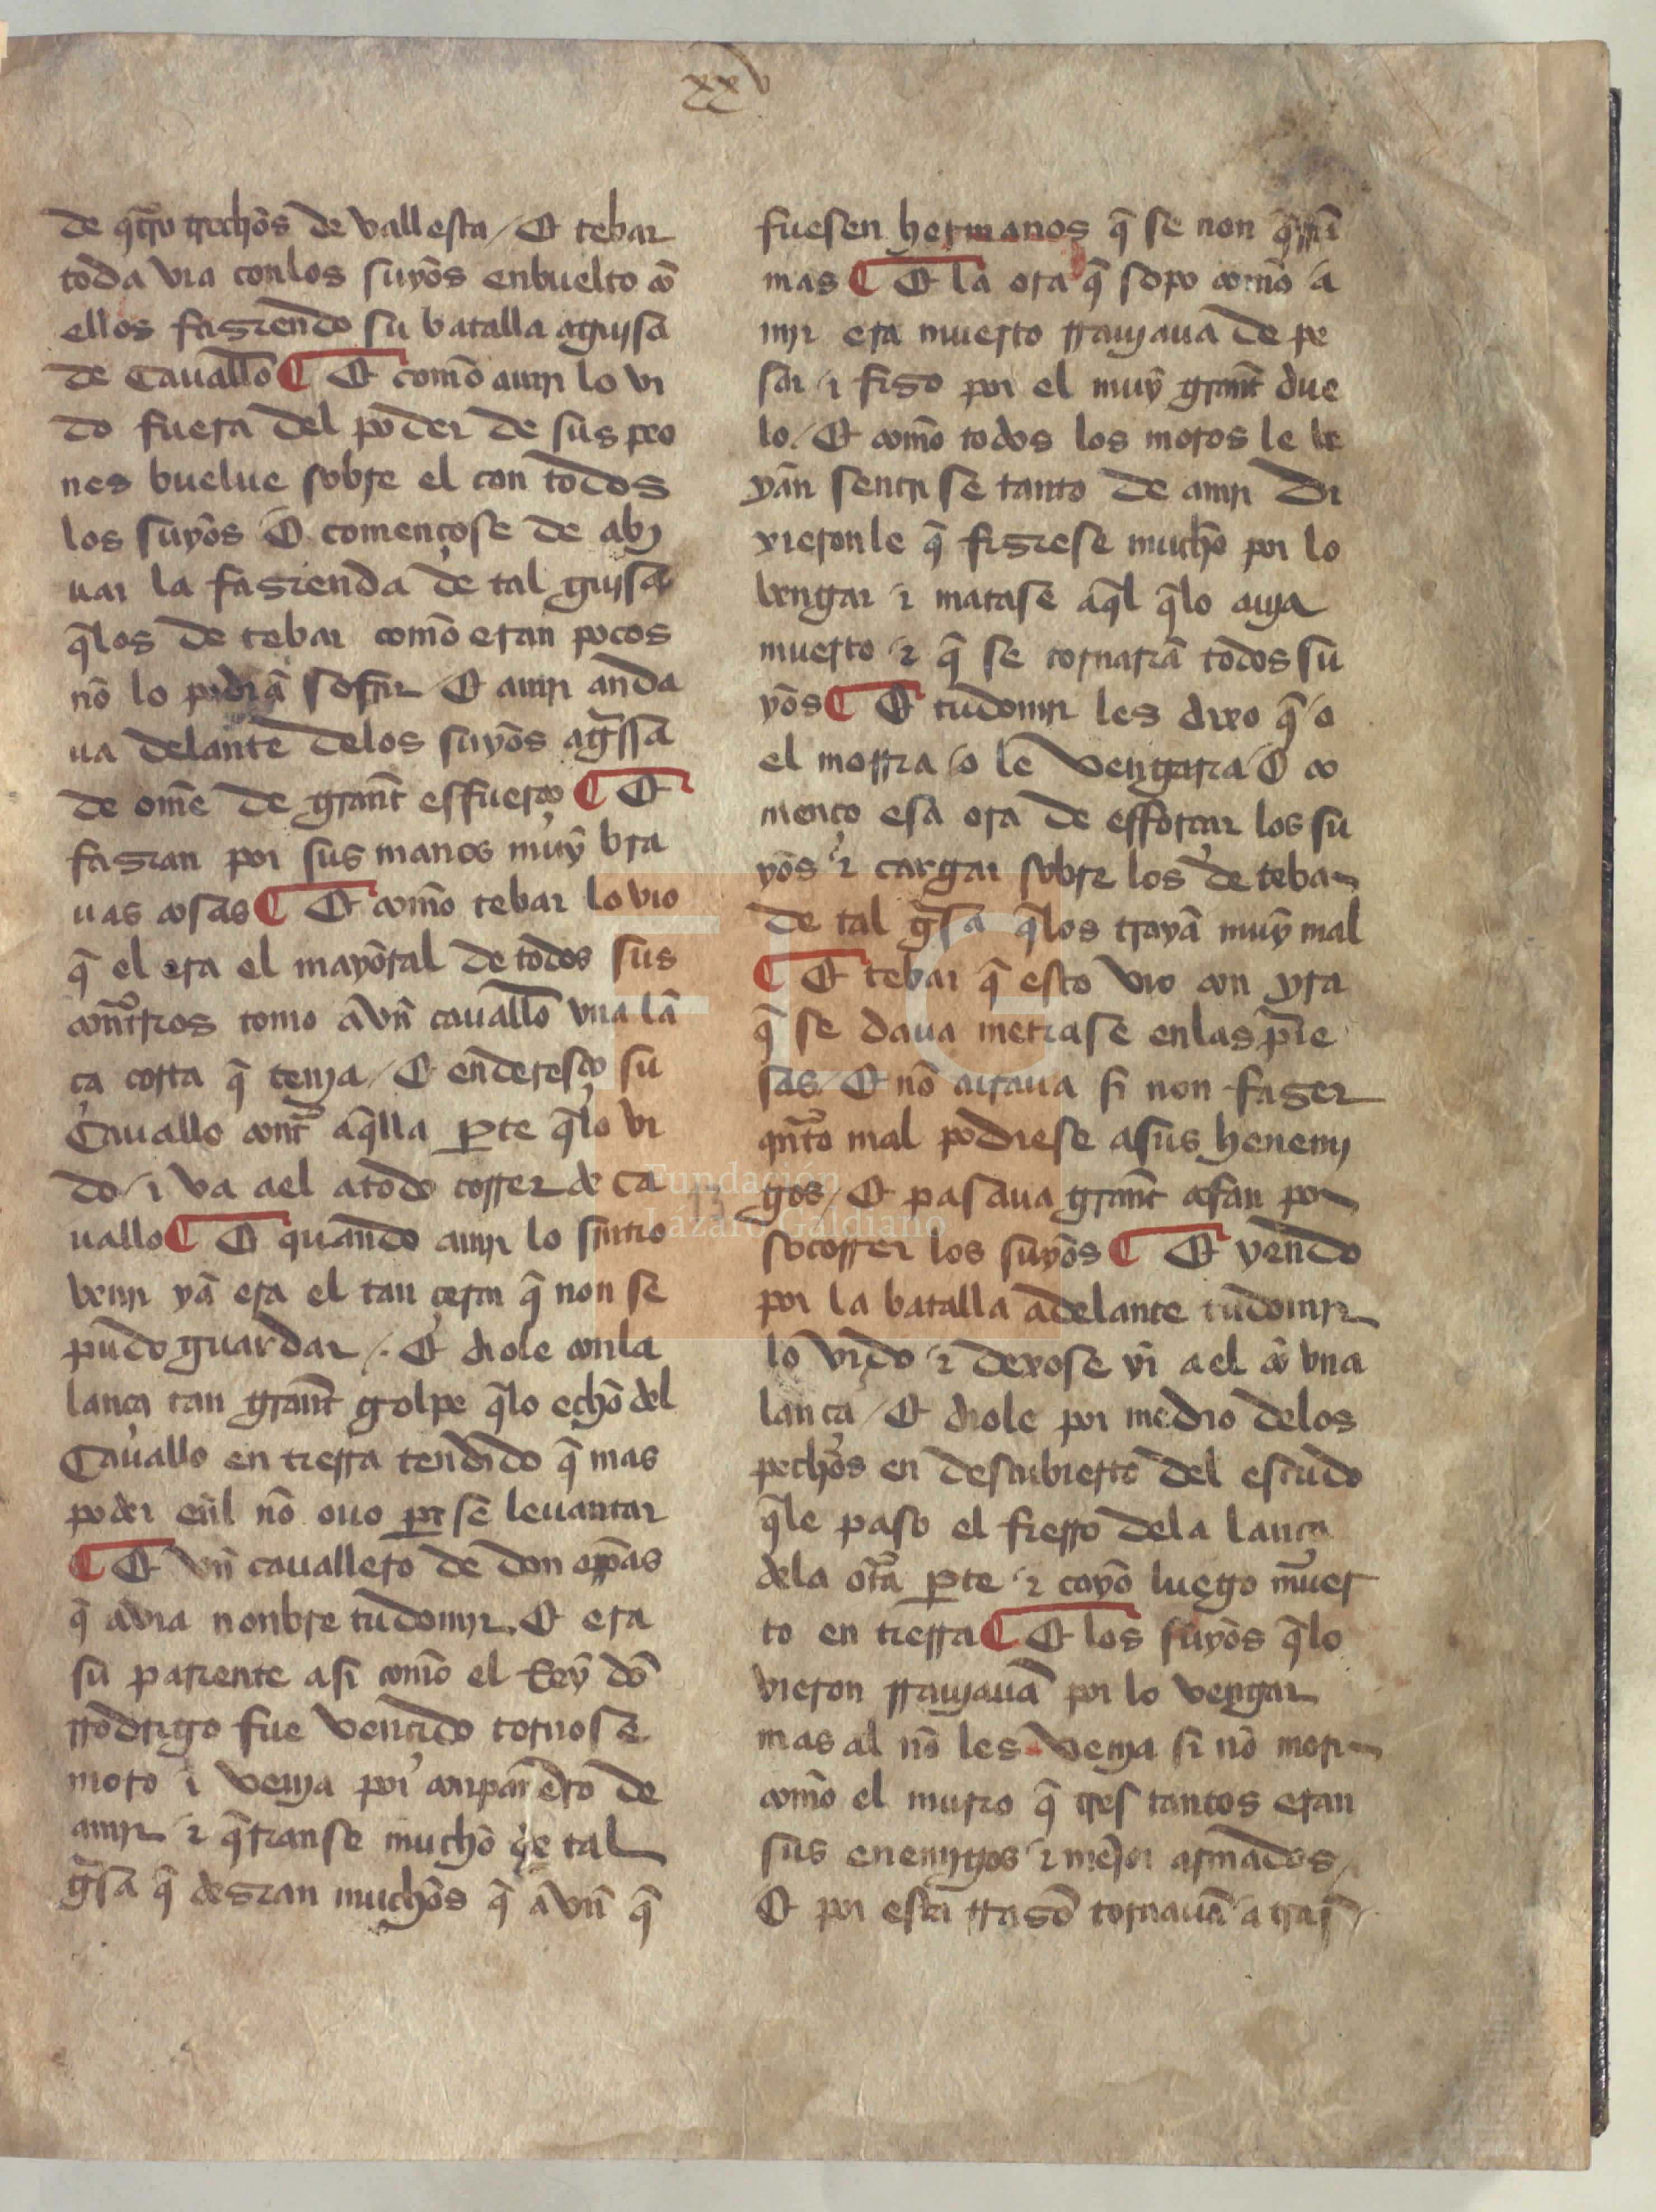 xxv
de qtro trechos de vallesta / Et tebar
toda via conlos suyos enbuelto cõ
ellos fasiendo su batalla aguisa
de Cauallo ¶ Et como amir lo vi
do fuera del poder de sus peo
nes buelue sobre el con todos
los suyos Et començose de abi
uar la fasienda de tal guisa
q̃los de tebar como eran pocos
nõ lo podiã sofrir / Et amir anda
ua delante delos suyos agssa
de ome de grant esfuerço ¶ Et
fasian por sus manos muy bra
uas cosas ¶ Et como tebar lo vio
q̃ el era el mayoral de todos sus
contrros tomo a vñ cauallo vna lã
ça corta q̃ tenja / Et enderesço su
Cauallo contra aq̃lla pte q̃lo vi
do / i va ael atodo correr de ca
uallo ¶ Et quando amir lo sintio
venir ya era el tan cerca q̃ non se
pudo guardar / . Et diole conla
lança tan grant golpe q̃lo echo del
Cauallo en tierra tendido q̃ mas
poder enl nõ ouo par se leuantar
¶ Et vñ cauallero de don opas
q̃ avia nonbre tudomjr. Et era
su pariente asi como el Rey dõ
rrodrigo fue vencido tornose
moro i venja por conpañero de
amjr i q̃rianse mucho de tal
gsa q̃ desian muchos q̃ a vñ q̃
fuesen hermanos q̃ se non q̃rriã
mas ¶ Et la ora q̃ sopo como a
mjr era muerto rraujaua de pe
sar i fiso por el muy grant due
lo / Et como todos los moros le ve
yan sentirse tanto de amjr di
xieronle q̃ fisiese mucho por lo
vengar i matase aq̃l q̃lo auja
muerto i q̃ se tornariã todos su
yos ¶ Et tudomjr les dixo q̃ o
el morria o le vengaria Et co
menço esa ora de esforçar los su
yos i cargar sobre los de tebar
de tal gsa q̃los trayã muy mal
¶ Et tebar q̃ esto vio con yra
q̃ se daua metiase enlas prie
sas / Et nõ miraua si non faser
qnto mal podiese asus henemj
gos / Et pasaua grant afan por
socorrer los suyos ¶ Et yendo
por la batalla adelante tudomjr
lo vido i dexose yr a el cõ vna
lança / Et diole por medio delos
pechos en descubierto del escudo
q̃le paso el fierro dela lança
dela otra pte i cayo luego muer
to en tierra ¶ Et los suyos q̃lo
vieron rraujauã por lo vengar
mas al nõ les venja si nõ morir
como el murio q̃ tres tantos eran
sus enemjgos i mejor armados /
Et por esta rrasõ tornauã a traer
Fundación
Lázaro Galdiano